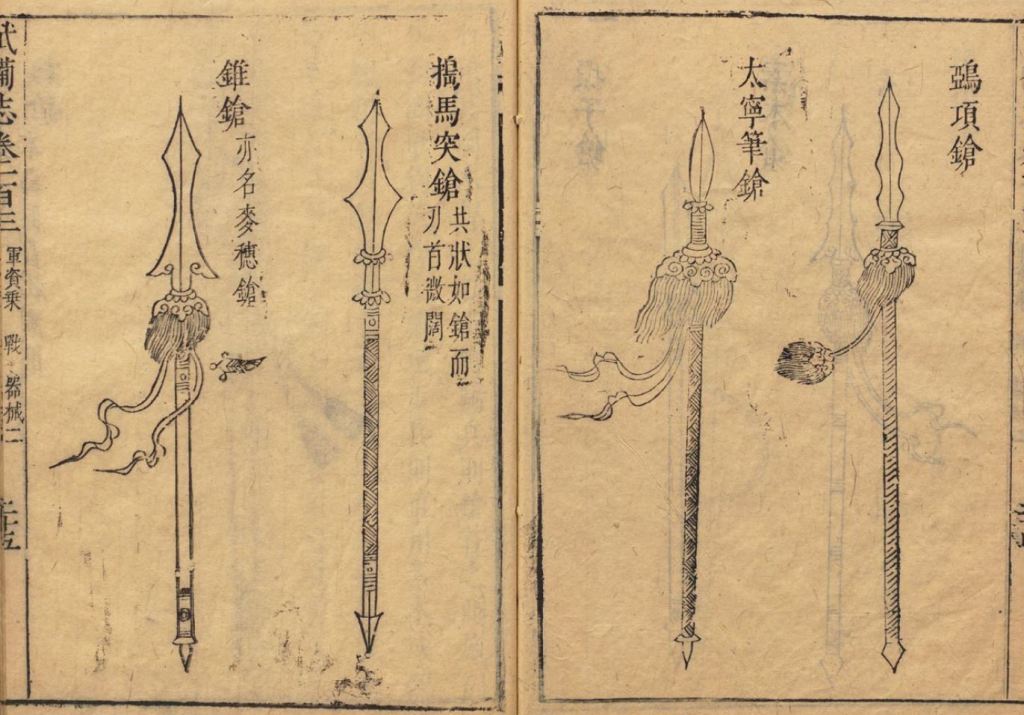 鵶項鎗
太寧筆鎗
搗馬突鎗
共狀如鎗而
刃首微闊
錐鎗亦名麥穗鎗
武備志卷一百三 軍資乗 戰 器械二 二十五